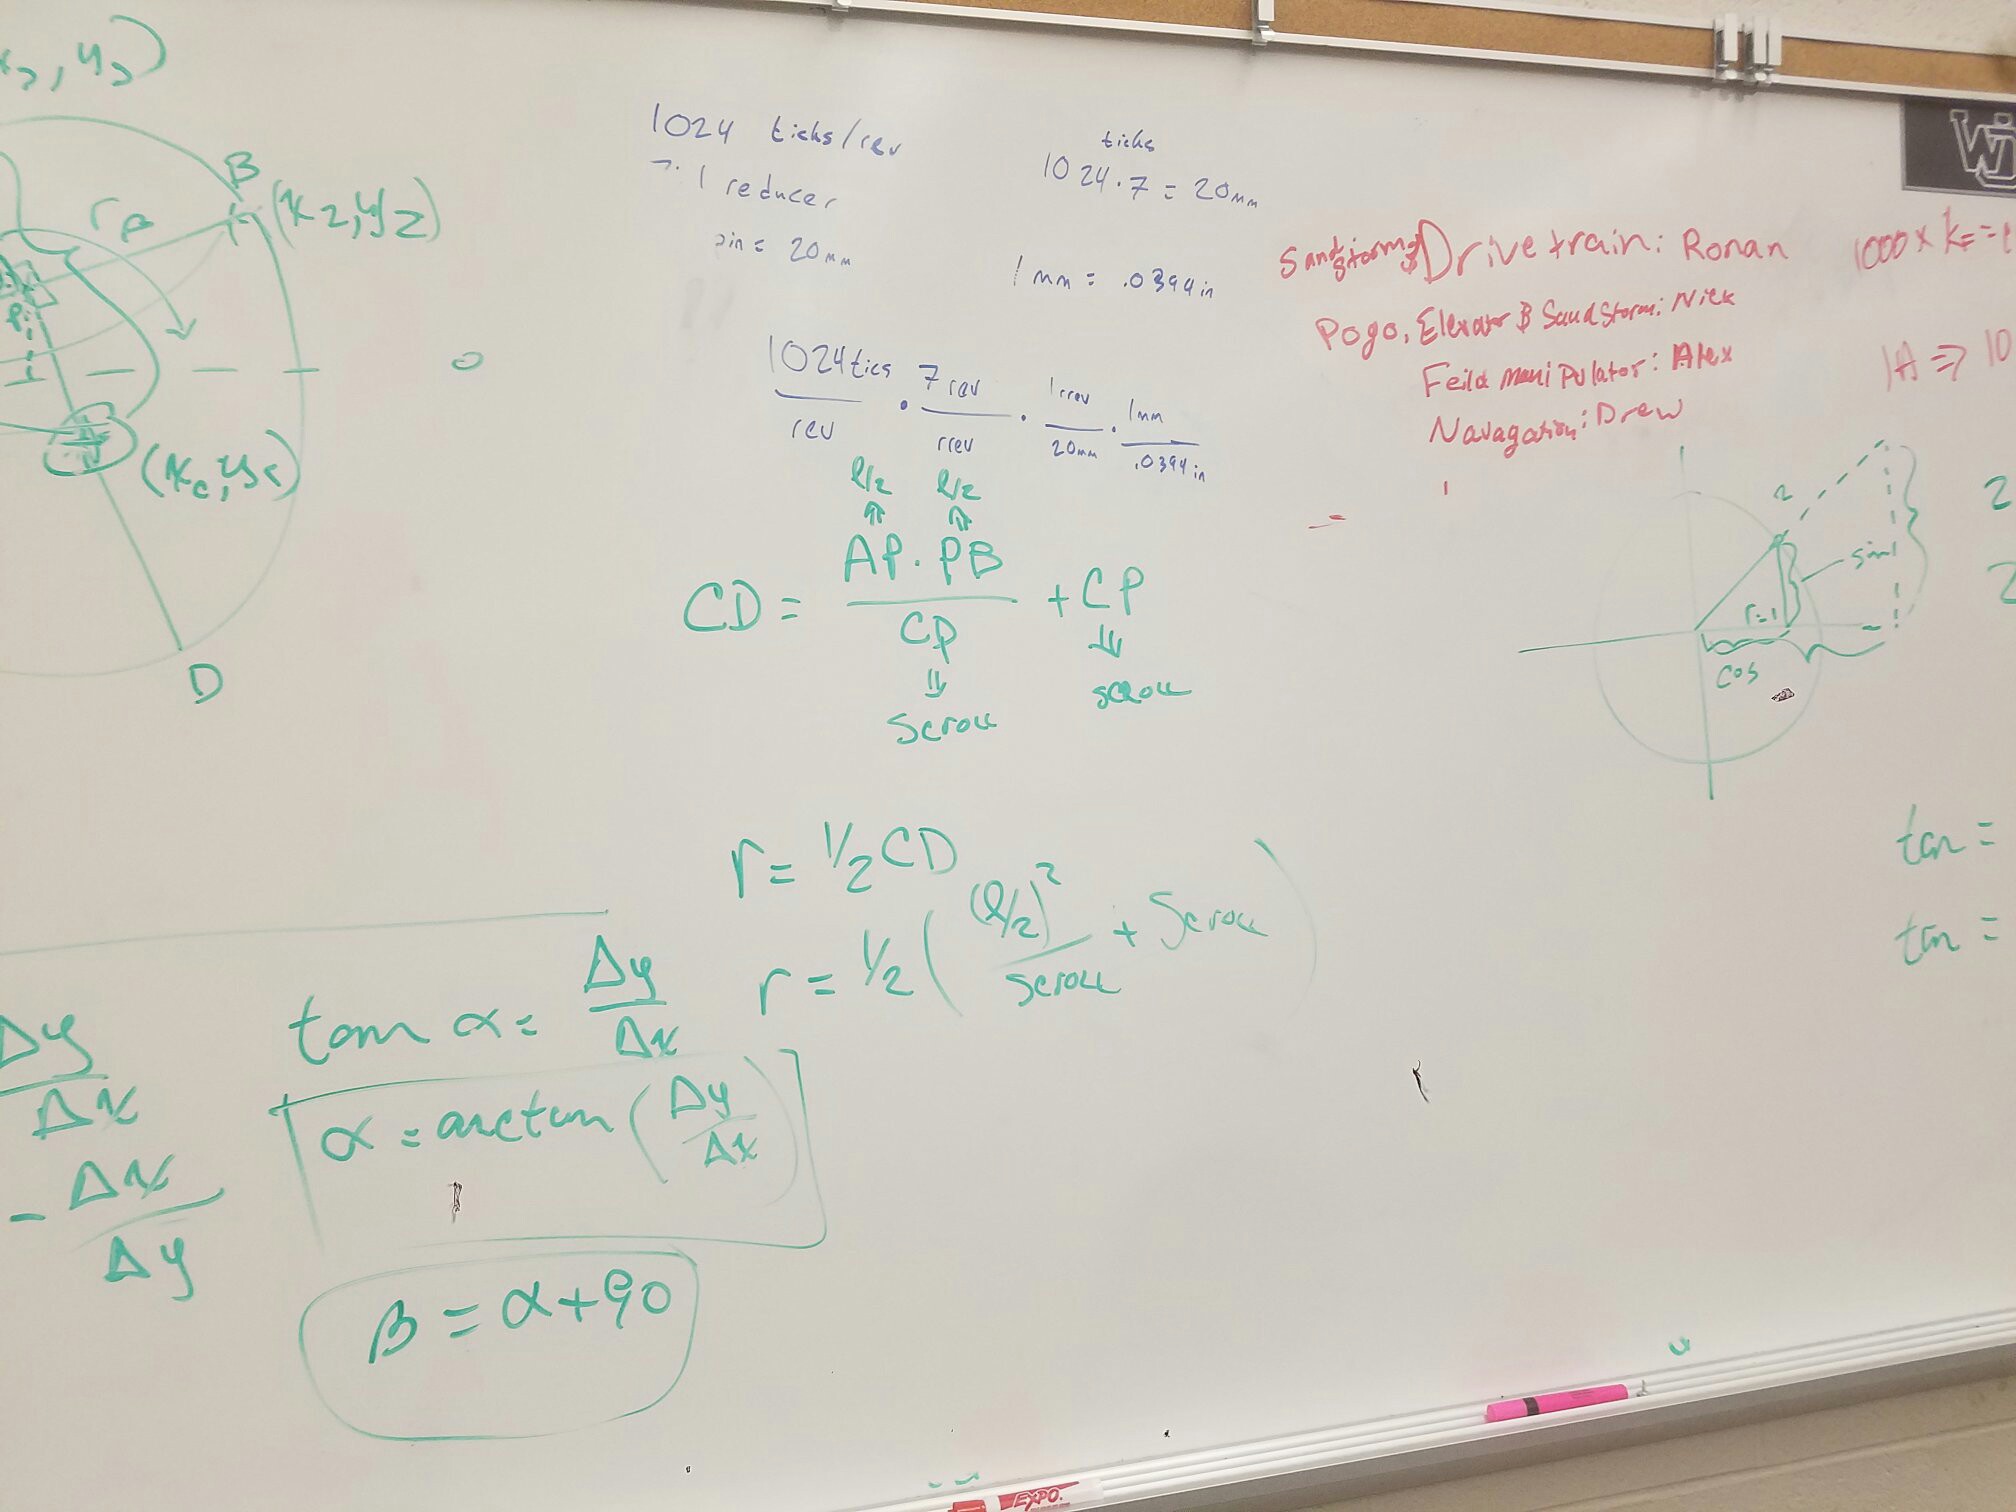 B
(x2, y2)
(xc, yc)
D
1024 ticks/rev
7:1 reducer
20mm
ticks
1024 · 7 = 20mm
1mm = .0394in
1024tics / rev · 7rev / rrev · 1rrev / 20mm · 1mm / .0394in
l/2 l/2
CD = AP · PB / CP + CP
scroll
scroll
r = 1/2 CD
r = 1/2 ( (l/2)² / scroll + Scroll )
Δy / Δx
-Δx / Δy
tan α = Δy / Δx
α = arctan ( Δy / Δx )
β = α + 90
Sandstorm & Drive train: Ronan
Pogo, Elevator & Sandstorm: Nick
Feild maniPulator: Alex
Navagation: Drew
1000 x
1A ⇒ 10
2
sin
r=1
cos
2
2
tan =
tan =
WJ
EXPO